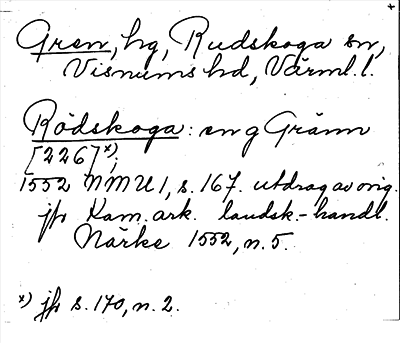 +
Gren, hg, Rudskoga sn,
Visnums hd, Värml. l.
Rödskoga: en g Gränn
[226]x).
1552 NMU 1, s. 167. utdrag av orig.
jfr Kam. ark. landsk.-handl.
Närke 1552, n. 5.
x) jfr s. 170, n. 2.